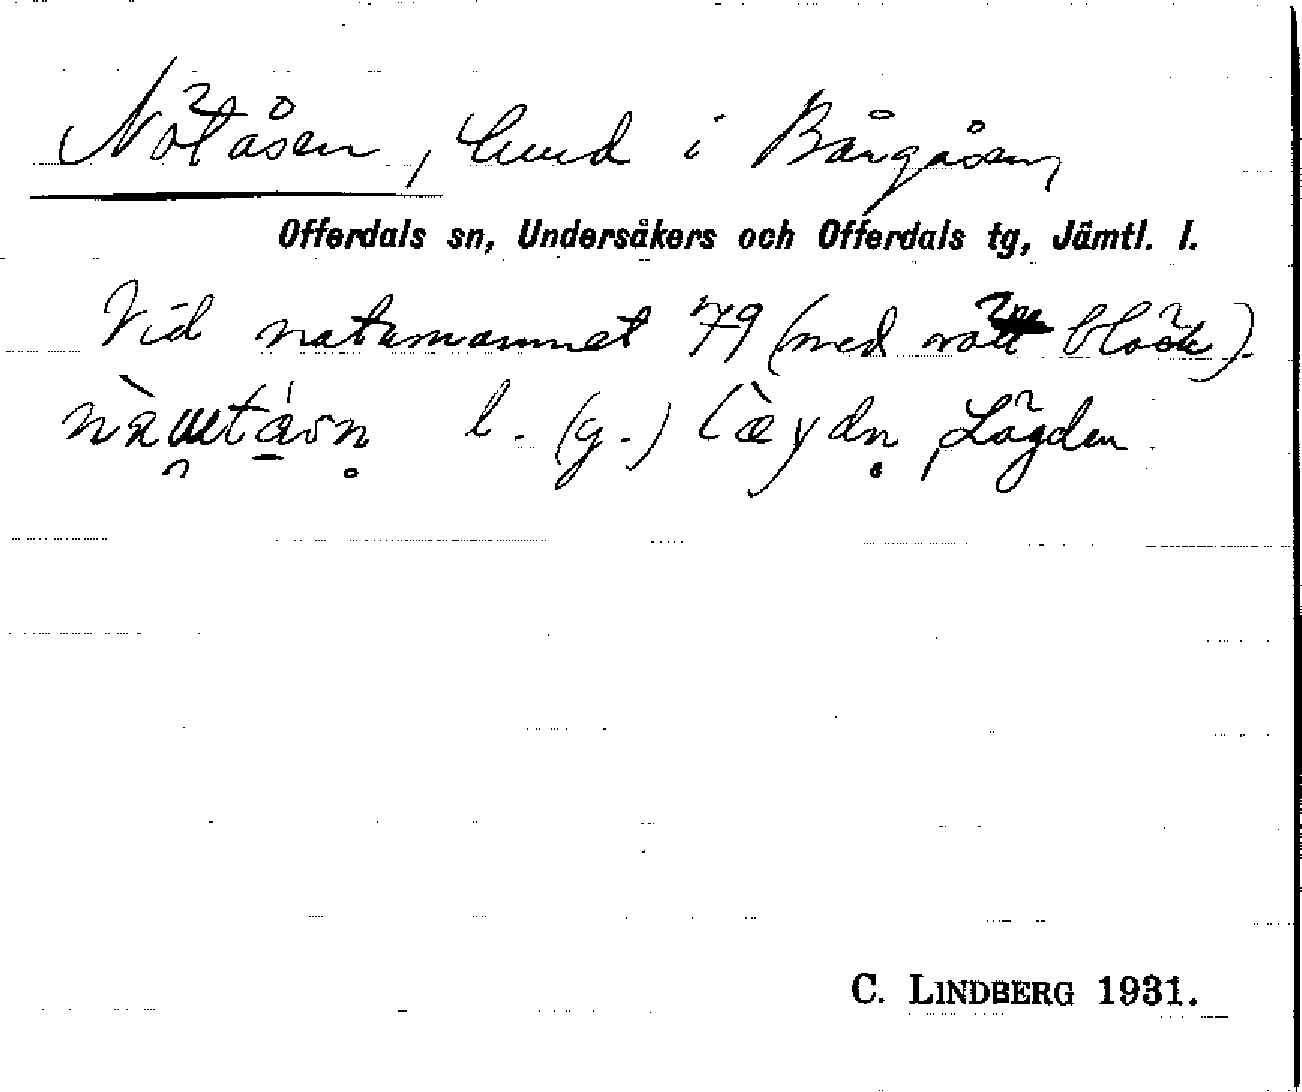 Nötåsen, lund i Bångåsen,
Offerdals sn, Undersåkers och Offerdals tg, Jämtl. l.
Vid natumamnet 79 (med rött bläck).
l. (g.) Lögden.
C. LINDBERG 1931.